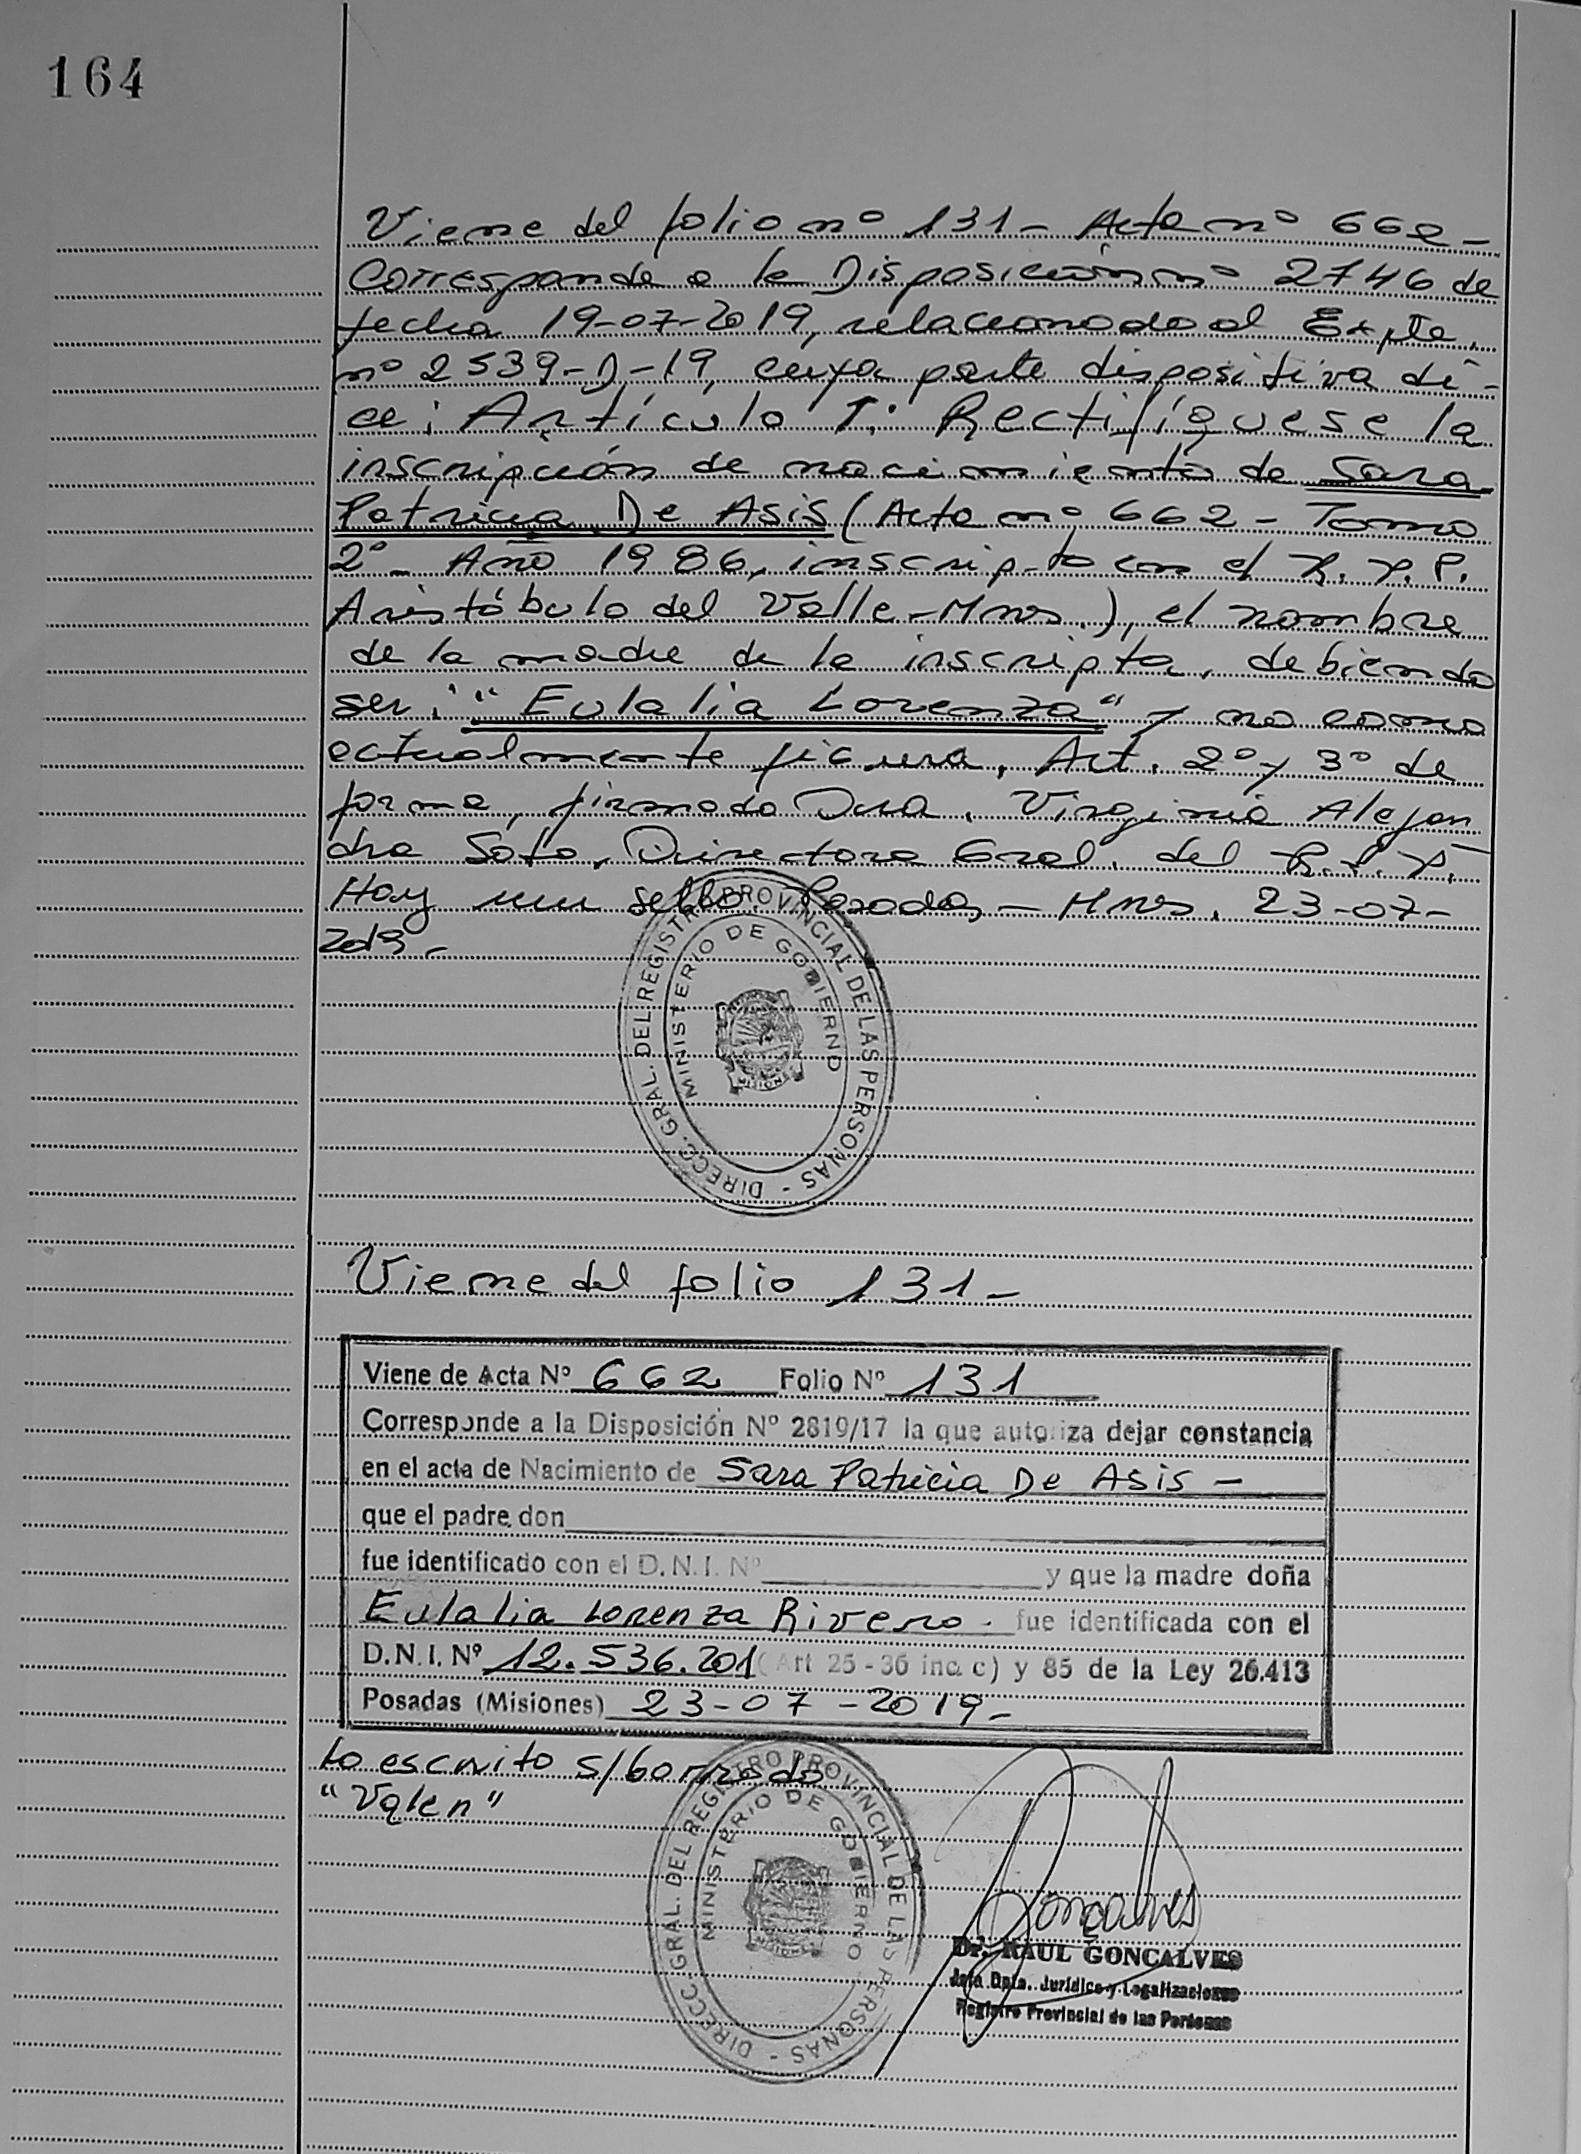 164
Viene del folio nº 131 - Acta nº 662 -
Corresponde a la Disposición nº 2746 de
fecha 19-07-2019, relacionado al Expte.
nº 2539-D-19, cuya parte dispositiva di-
ce: Artículo 1: Rectifíquese la
inscripción de nacimiento de Sara
Patricia De Asis (Acta nº 662 - Tomo
2º - Año 1986, inscripta en el R. P. P.
Aristóbulo del Valle - Mnes.), el nombre
de la madre de la inscripta, debiendo
ser: "Eulalia Lorenza" y no como
actualmente figura. Art. 2º y 3º de
forma, firmado Dra. Virginia Alejan
dra Soto, Directora Gral. del R. P. P.
Hay un sello. Posadas - Mnes. 23-07-
2019.-
DIRECC. GRAL. DEL REGISTRO PROVINCIAL DE LAS PERSONAS -
MINISTERIO DE GOBIERNO
MISIONES
Viene del folio 131 -
Viene de Acta Nº 662 Folio Nº 131
Corresponde a la Disposición Nº 2819/17 la que autoriza dejar constancia
en el acta de Nacimiento de Sara Patricia De Asis -
que el padre don
fue identificado con el D.N.I. Nº y que la madre doña
Eulalia Lorenza Rivero. fue identificada con el
D.N.I. Nº 12.536.201 (Art 25 - 36 inc. c) y 85 de la Ley 26.413
Posadas (Misiones) 23-07-2019 -
Lo escrito s/borrado
"Valen"
DIRECC. GRAL. DEL REGISTRO PROVINCIAL DE LAS PERSONAS -
MINISTERIO DE GOBIERNO
MISIONES
Gonçalves
Dr. RAUL GONCALVES
Jefe Dpto. Jurídico y Legalizaciones
Registro Provincial de las Personas